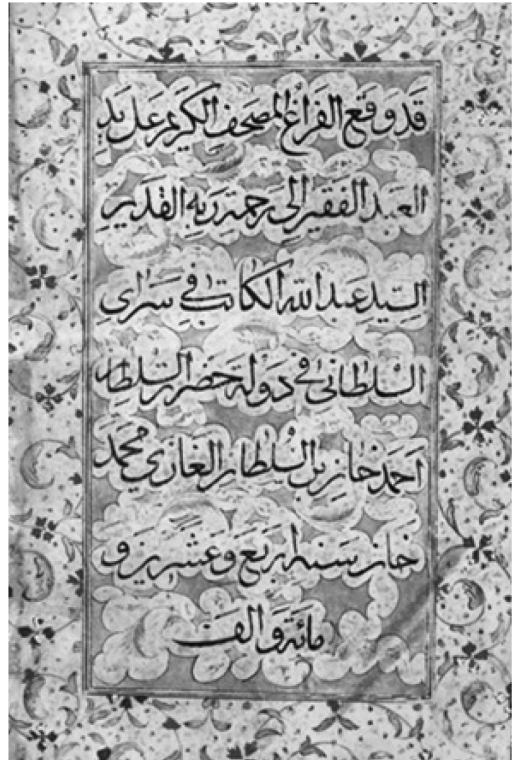 قد وقع الفراغ المصحف الكريم على يد
العبد الفقير الى رحمة ربه القدير
السيد عبد الله الكاتب في سراي
السلطاني في دولة حضرة السلطان
احمد خان بن السلطان الغازي محمد
خان سنه اربع وعشرين و
مائة والف